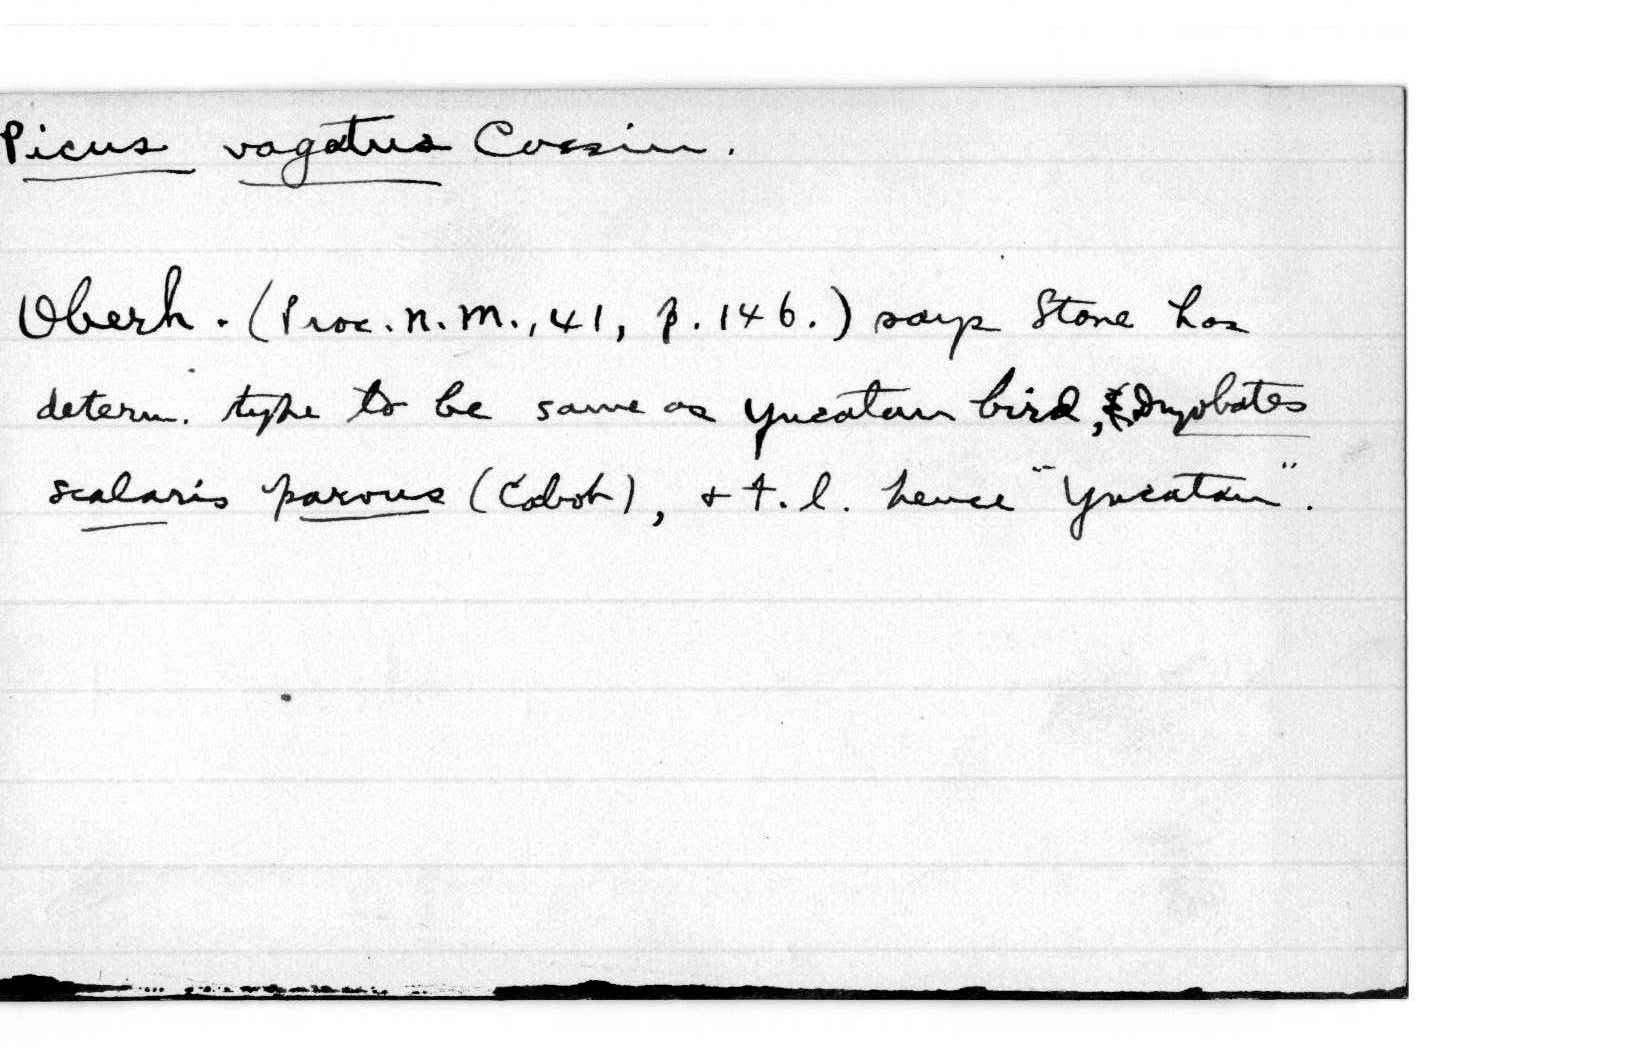 Picus vagatus Cassin.
Oberh. (Proc. N. M., 41, p. 146.) says Stone has
determ. type to be same as Yucatan bird, Dryobates
scalaris parvus (Cabot), + t. l. hence "Yucatan".